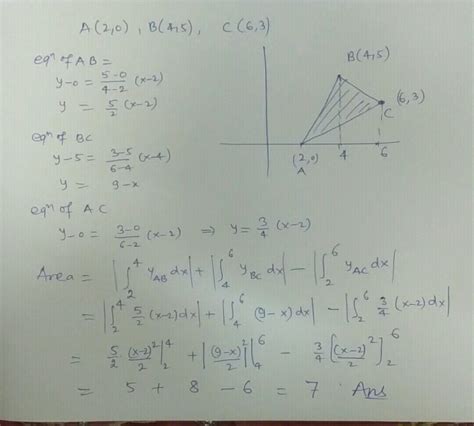 A(2,0) , B(4,5) , C(6,3)
eqⁿ of AB =
y-0 = 5-0/4-2 (x-2)
y = 5/2 (x-2)
eqⁿ of BC
y-5 = 3-5/6-4 (x-4)
y = 9-x
eqⁿ of AC
y-0 = 3-0/6-2 (x-2) ⇒ y= 3/4 (x-2)
B(4,5)
(6,3)
C
(2,0)
A
4
6
Area = |∫₂⁴ y_AB dx| + |∫₄⁶ y_BC dx| - |∫₂⁶ y_AC dx|
= |∫₂⁴ 5/2 (x-2) dx| + |∫₄⁶ (9-x) dx| - |∫₂⁶ 3/4 (x-2) dx|
= 5/2 (x-2)²/2 |₂⁴ + |(9-x)²/2|₄⁶ - 3/4 [(x-2)²/2]₂⁶
= 5 + 8 - 6 = 7 Ans